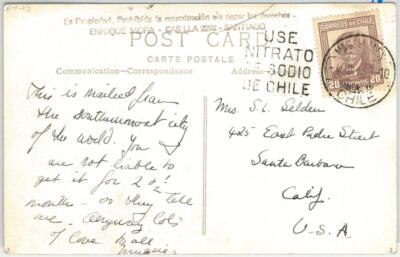 Es Propiedad, Prohibida la reproducción sin pagar los derechos
ENRIQUE MORA - CASILLA 2292 - SANTIAGO
POST CARD
CARTE POSTALE
Communication-Correspondance
Address
USE
NITRATO
DE SODIO
DE CHILE
CORREOS DE CHILE
20 CENTAVOS 20
CHILE
10
This is mailed from
the southernmost city
of the world. You
are not liable to
get it for 2 or
months - so they tell
me. Anyway lots
of love to all
Mrs. S. L. Selden
425 East Padre Street
Santa Barbara
Calif.
U. S. A